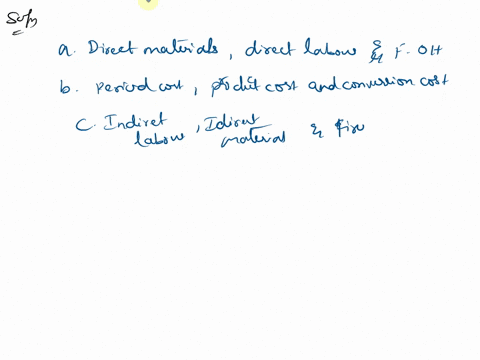 Soln
a. Direct materials, direct labour & F-OH
b. Period cost, product cost and conversion cost
C. Indiret labour, Idirect material & fix